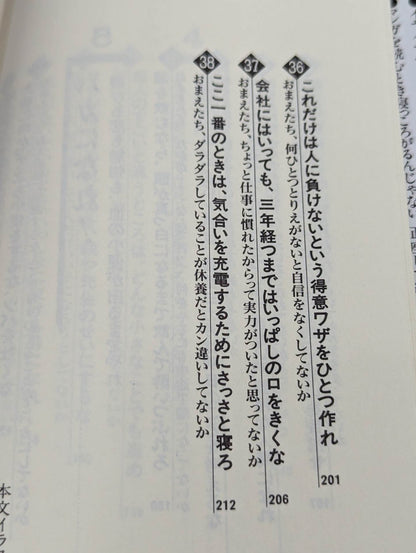 36 これだけは人に負けないという得意ワザをひとつ作れ
おまえたち、何ひとつとりえがないと自信をなくしてないか
201
37 会社にはいっても、三年経つまではいっぱしの口をきくな
おまえたち、ちょっと仕事に慣れたからって実力がついたと思ってないか
206
38 ここ一番のときは、気合いを充電するためにさっさと寝ろ
おまえたち、ダラダラしていることが休養だとカン違いしてないか
212
本文イラス